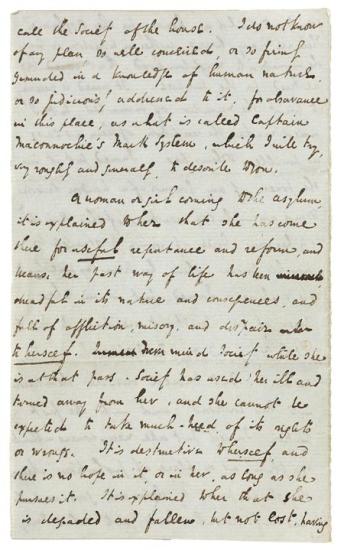 call the Society of the house. I do not know
of any plan so well conceived or so firmly
grounded in a knowledge of human nature,
or so judiciously addressed to it, for observance
in this place, as what is called Captain
Maconnochie's Mark System, which I will try,
very roughly and generally, to describe to you.
A woman or girl coming to the asylum
it is explained to her that she has come
there for useful repentance and reform, and
because her past way of life has been
dreadful in its nature and consequences, and
full of affliction, misery, and despair
to herself. Never mind Society while she
is at that pass. Society has used her ill and
turned away from her, and she cannot be
expected to take much heed of its rights
or wrongs. It is destructive to herself, and
there is no hope in it, or in her, as long as she
pursues it. It is explained to her that she
is degraded and fallen, but not lost, having